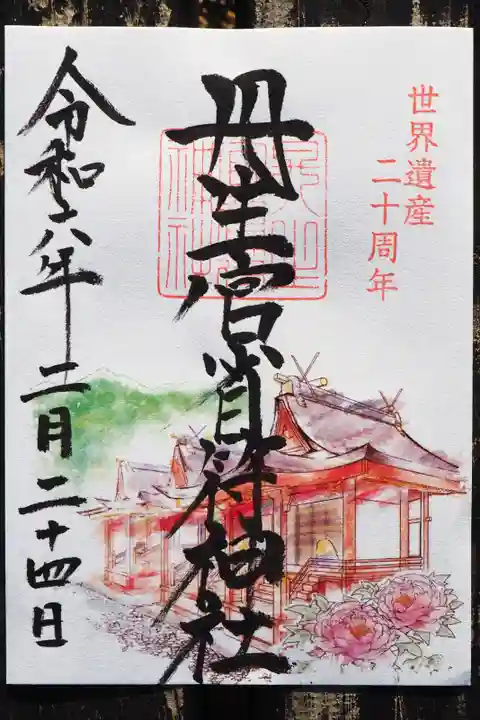 世界遺産
二十周年
丹生官省符神社
令和六年二月二十四日